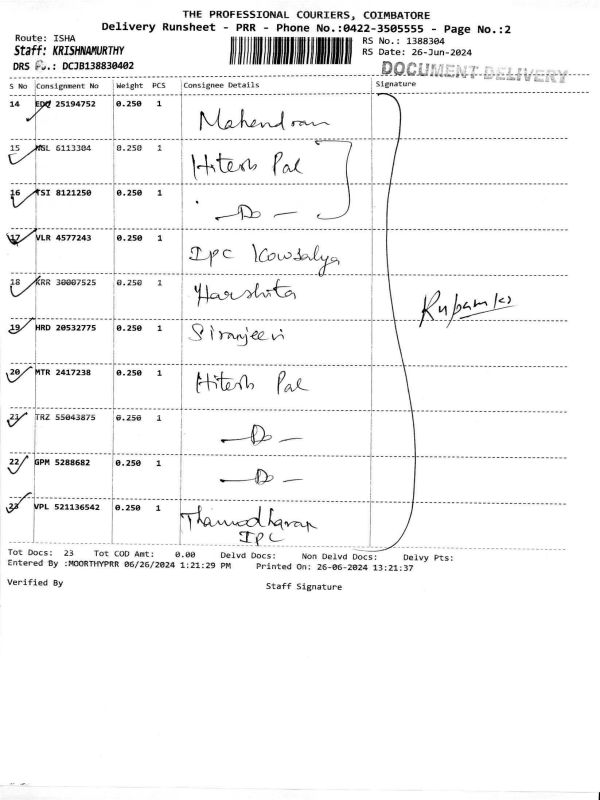 THE PROFESSIONAL COURIERS, COIMBATORE
Delivery Runsheet - PRR - Phone No.:0422-3505555 - Page No.:2
Route: ISHA RS No.: 1388304
Staff: KRISHNAMURTHY RS Date: 26-Jun-2024
DRS No.: DCJB138830402 DOCUMENT DELIVERY
S No Consignment No Weight PCS Consignee Details Signature
14 EDQ 25194752 0.250 1 Mahendran
15 6113304 0.250 1 Hitesh Pal
16 TSI 8121250 0.250 1 - Do -
17 VLR 4577243 0.250 1 Ipc Kowsalya
18 KRR 30007525 0.250 1 Harshita
19 HRD 20532775 0.250 1 Siranjeevi
20 MTR 2417238 0.250 1 Hitesh Pal
21 TRZ 55043875 0.250 1 - Do -
22 GPM 5288682 0.250 1 - Do -
23 VPL 521136542 0.250 1 Thamodharan
IPC
Tot Docs: 23 Tot COD Amt: 0.00 Delvd Docs: Non Delvd Docs: Delvy Pts:
Entered By :MOORTHYPRR 06/26/2024 1:21:29 PM Printed On: 26-06-2024 13:21:37
Verified By Staff Signature